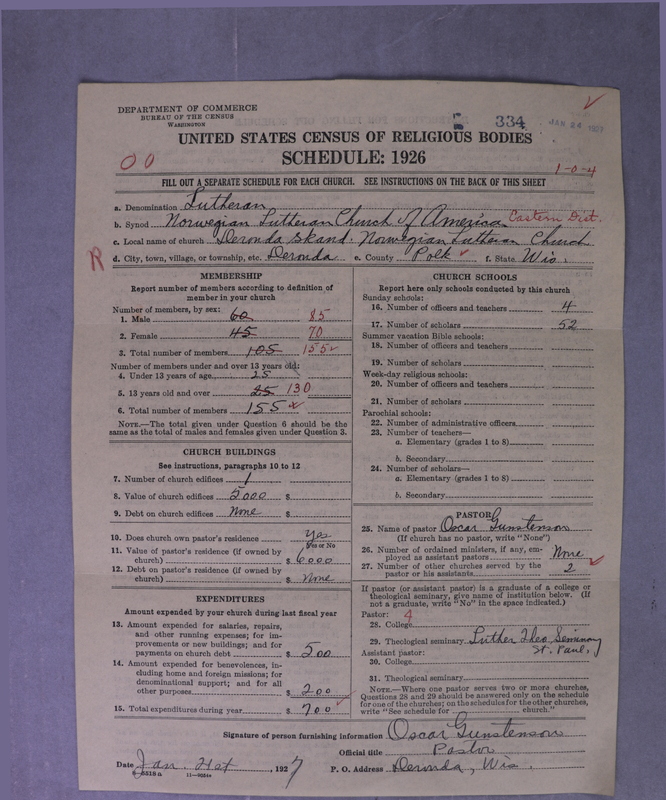 DEPARTMENT OF COMMERCE
BUREAU OF THE CENSUS
WASHINGTON
334
JAN 24 1927
UNITED STATES CENSUS OF RELIGIOUS BODIES
SCHEDULE: 1926
00
1-0-4
FILL OUT A SEPARATE SCHEDULE FOR EACH CHURCH. SEE INSTRUCTIONS ON THE BACK OF THIS SHEET
a. Denomination Lutheran
b. Synod Norwegian Lutheran Church of America Eastern Dist.
c. Local name of church Deronda Skand. Norwegian Lutheran Church
R
d. City, town, village, or township, etc. Deronda e. County Polk f. State Wis.
MEMBERSHIP
Report number of members according to definition of
member in your church
Number of members, by sex:
1. Male 60 85
2. Female 45 70
3. Total number of members 105 155
Number of members under and over 13 years old:
4. Under 13 years of age 25
5. 13 years old and over 25 130
6. Total number of members 155
NOTE.—The total given under Question 6 should be the
same as the total of males and females given under Question 3.
CHURCH BUILDINGS
See instructions, paragraphs 10 to 12
7. Number of church edifices 1
8. Value of church edifices 5000 $
9. Debt on church edifices None $
10. Does church own pastor's residence Yes
Yes or No
11. Value of pastor's residence (if owned by
church) $ 6000
12. Debt on pastor's residence (if owned by
church) $ None
EXPENDITURES
Amount expended by your church during last fiscal year
13. Amount expended for salaries, repairs,
and other running expenses; for im-
provements or new buildings; and for
payments on church debt $ 500
14. Amount expended for benevolences, in-
cluding home and foreign missions; for
denominational support; and for all
other purposes $ 200
15. Total expenditures during year $ 700
CHURCH SCHOOLS
Report here only schools conducted by this church
Sunday schools:
16. Number of officers and teachers 4
17. Number of scholars 52
Summer vacation Bible schools:
18. Number of officers and teachers
19. Number of scholars
Week-day religious schools:
20. Number of officers and teachers
21. Number of scholars
Parochial schools:
22. Number of administrative officers
23. Number of teachers—
a. Elementary (grades 1 to 8)
b. Secondary
24. Number of scholars—
a. Elementary (grades 1 to 8)
b. Secondary
PASTOR
25. Name of pastor Oscar Gunstenson
(If church has no pastor, write "None")
26. Number of ordained ministers, if any, em-
ployed as assistant pastors None
27. Number of other churches served by the
pastor or his assistants 2
If pastor (or assistant pastor) is a graduate of a college or
theological seminary, give name of institution below. (If
not a graduate, write "No" in the space indicated.)
Pastor: 4
28. College
29. Theological seminary Luther Theo. Seminary
St. Paul,
Assistant pastor:
30. College
31. Theological seminary
NOTE.—Where one pastor serves two or more churches,
Questions 28 and 29 should be answered only on the schedule
for one of the churches; on the schedules for the other churches,
write "See schedule for church."
Signature of person furnishing information Oscar Gunstenson
Official title Pastor
Date Jan. 21st, 1927 P. O. Address Deronda, Wis.